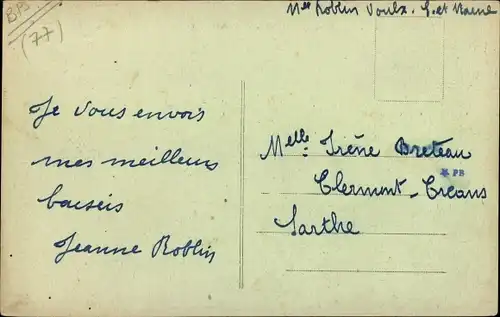 (77)
Mlle Roblin Voulx. S. et Marne
Je vous envois
mes meilleurs
baisers
Jeanne Roblin
Melle Irène Breteau
PB
Clermont-Créans
Sarthe